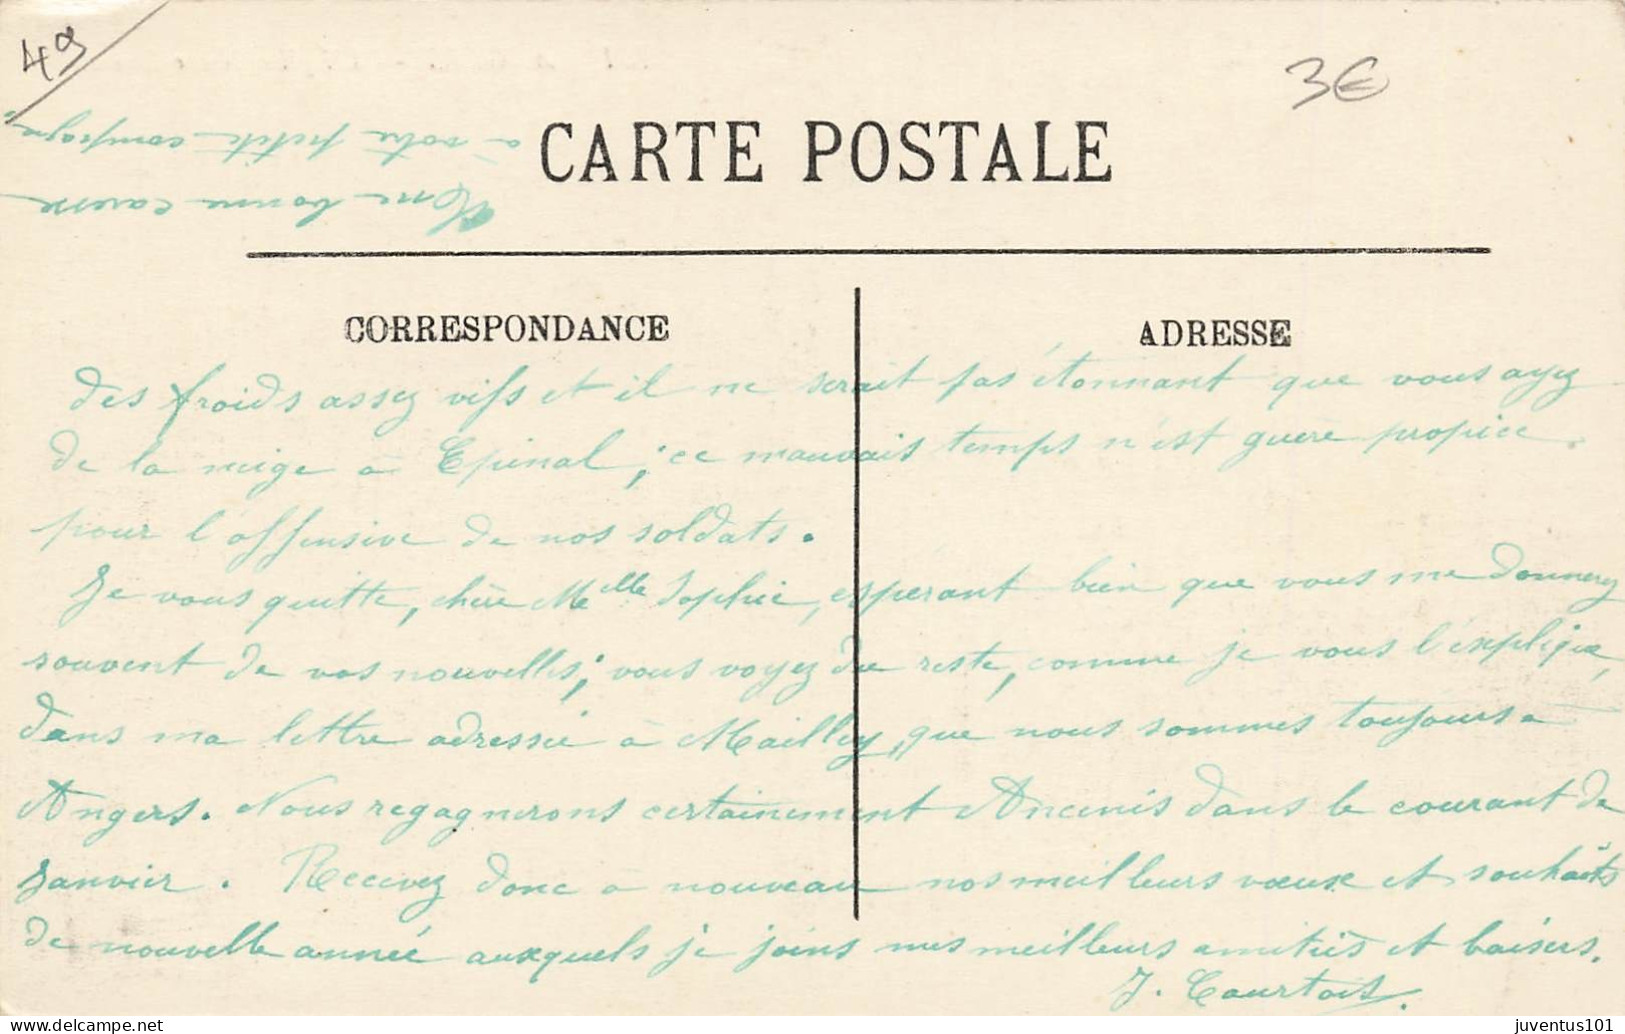 49
3€
Une bonne caresse
à votre petite compagne
CARTE POSTALE
CORRESPONDANCE
ADRESSE
des froids assez vifs et il ne serait pas étonnant que vous ayez
de la neige à Epinal ; ce mauvais temps n'est guère propice
pour l'offensive de nos soldats.
Je vous quitte, chère Melle Sophie, espérant bien que vous me donnerez
souvent de vos nouvelles ; vous voyez du reste, comme je vous l'explique,
dans ma lettre adressée à Mailly, que nous sommes toujours à
Angers. Nous regagnerons certainement Ancenis dans le courant de
Janvier. Recevez donc à nouveau nos meilleurs vœux et souhaits
de nouvelle année auxquels je joins mes meilleurs amitiés et baisers.
J. Courtois.
juventus101